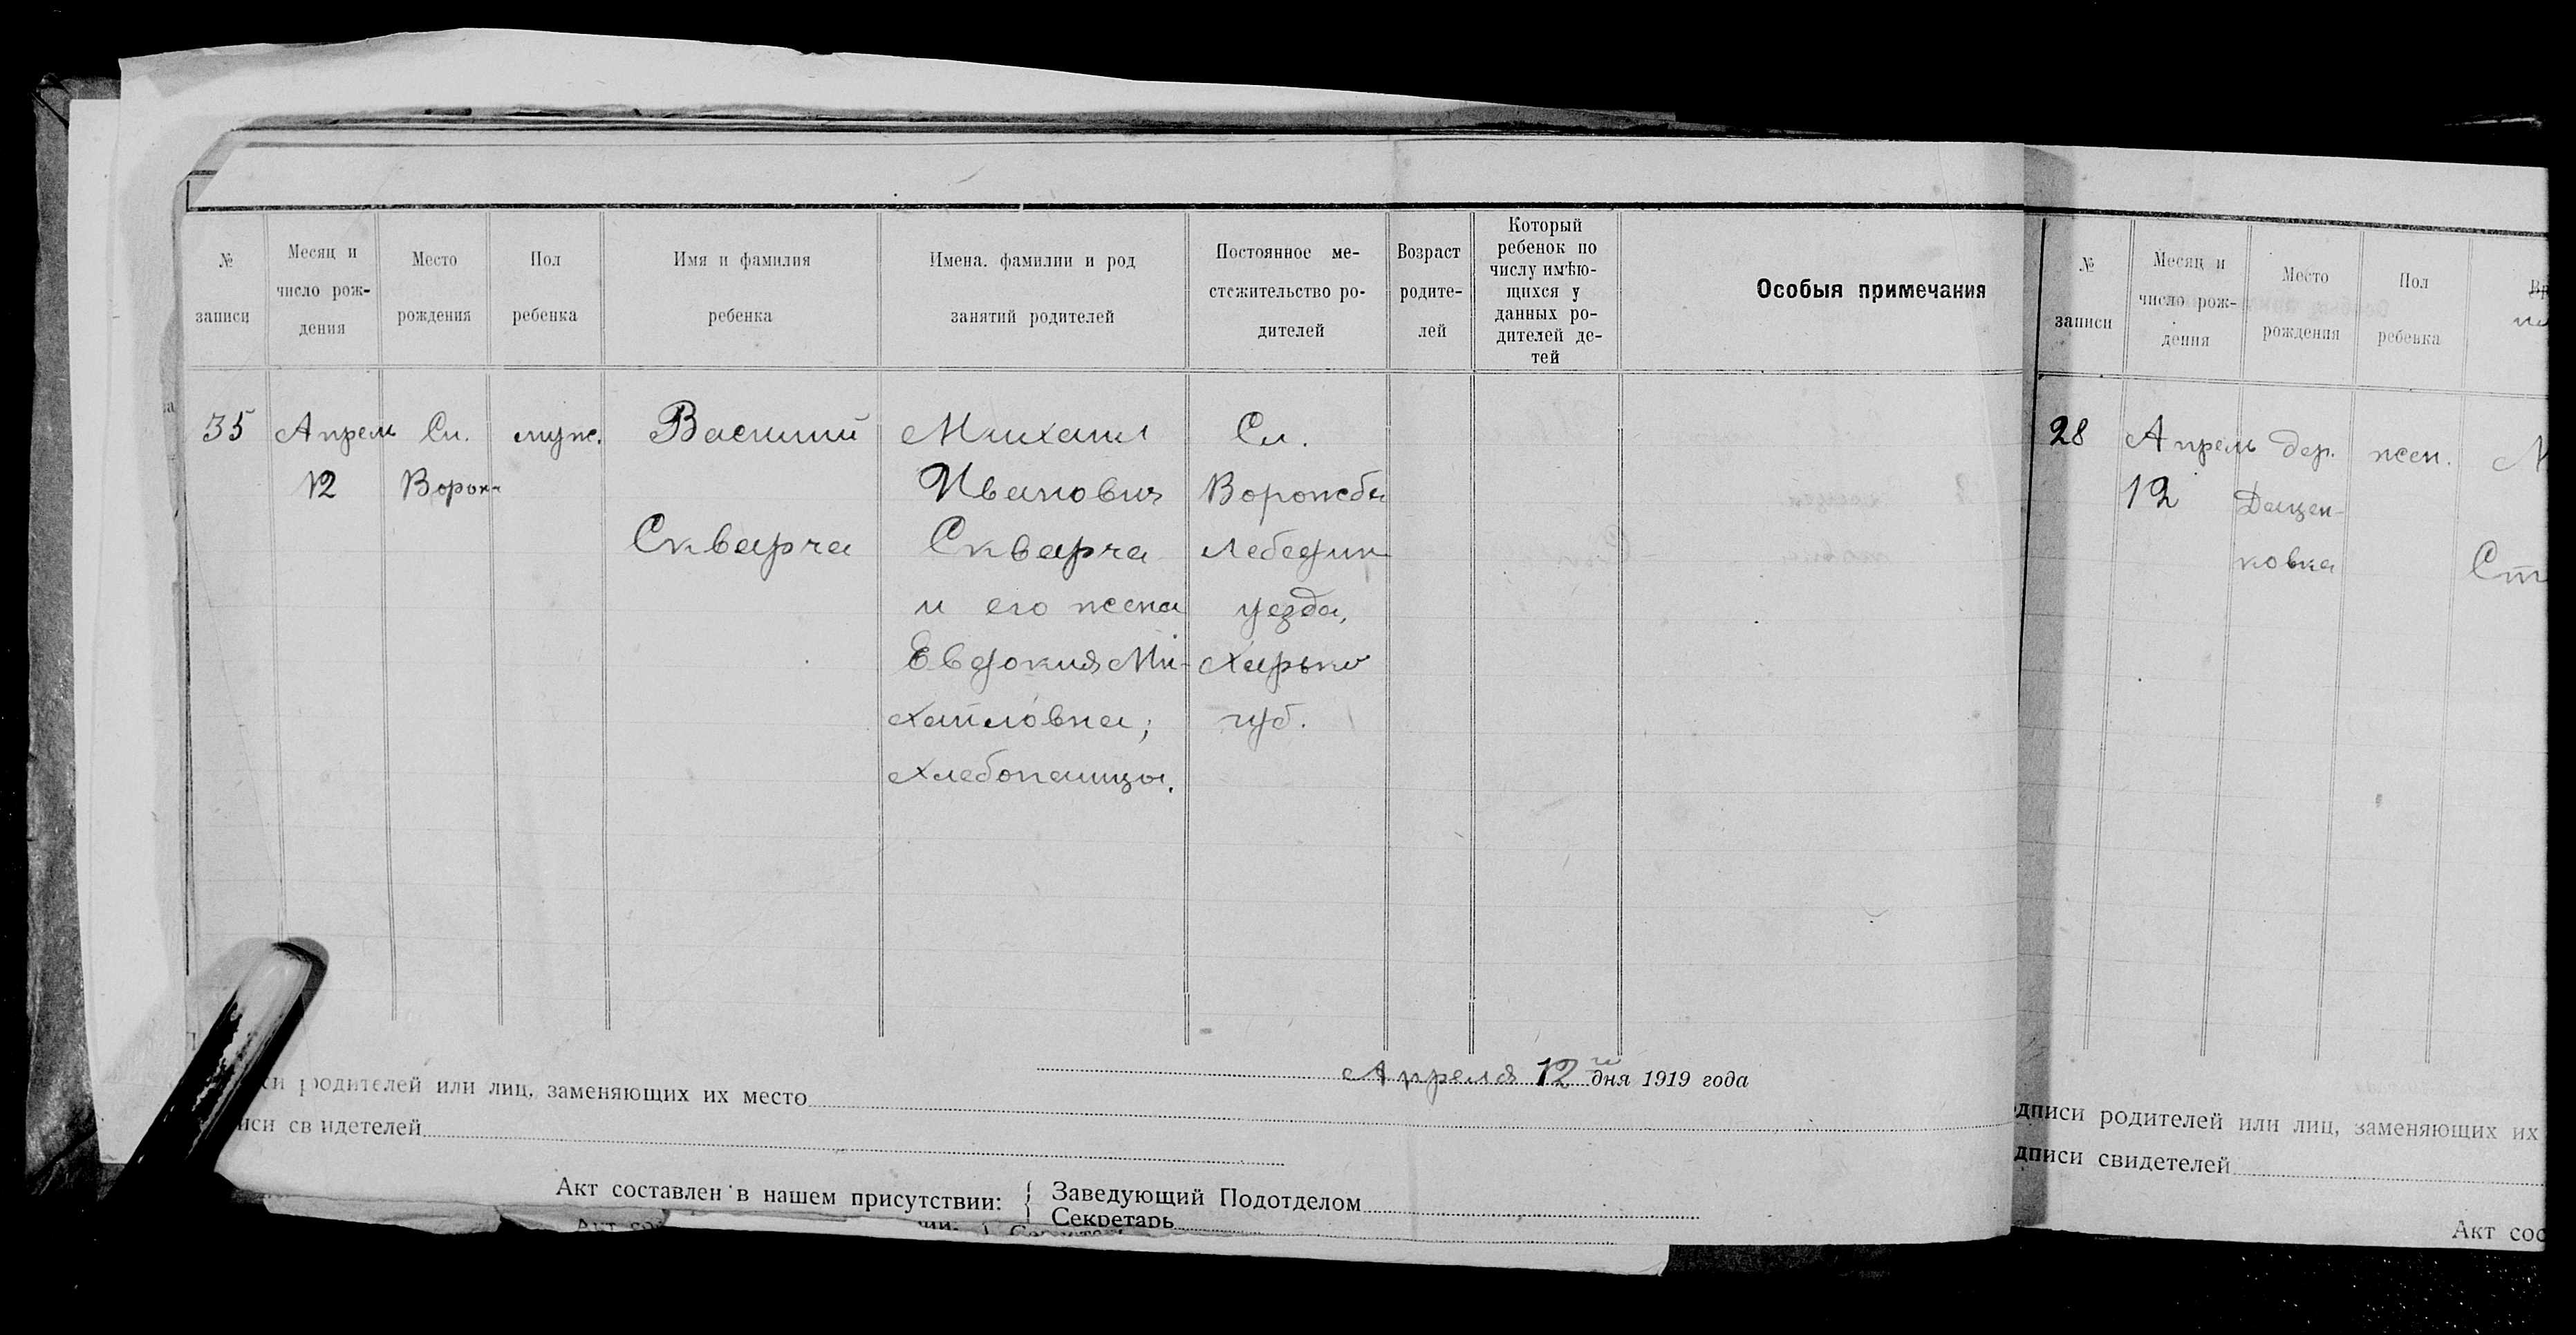 № записи
Месяц и число рождения
Место рождения
Пол ребенка
Имя и фамилия ребенка
Имена. фамилии и род занятий родителей
Постоянное местожительство родителей
Возраст родителей
Который ребенок по числу имѣющихся у данных родителей детей
Особыя примечания
35
Апрель
12
Сл.
Ворож-
муж.
Василий
Скварча
Михаил
Иванович
Скварча
и его жена
Евдокия Ми-
хайловна;
хлебопашцы.
Сл.
Ворожба
Лебедин
уезда,
Харьков
губ.
Апреля 12 го дня 1919 года
си родителей или лиц, заменяющих их место
иси свидетелей
Акт составлен в нашем присутствии:
Заведующий Подотделом
Секретарь
№ записи
Месяц и число рождения
Место рождения
Пол ребенка
28
Апрель
12
дер.
Дацен-
ковка
жен.
М
Ст
одписи родителей или лиц, заменяющих их
дписи свидетелей
Акт сос